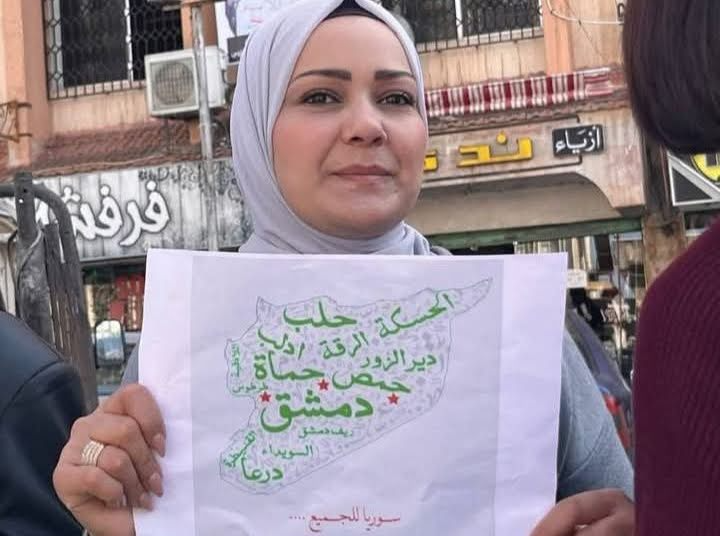 أزياء
ند
فرفش
حلب
الحسكة
إدلب
الرقة
دير الزور
اللاذقية
طرطوس
حماة
حمص
دمشق
ريف دمشق
السويداء
القنيطرة
درعا
سوريا للجميع ....